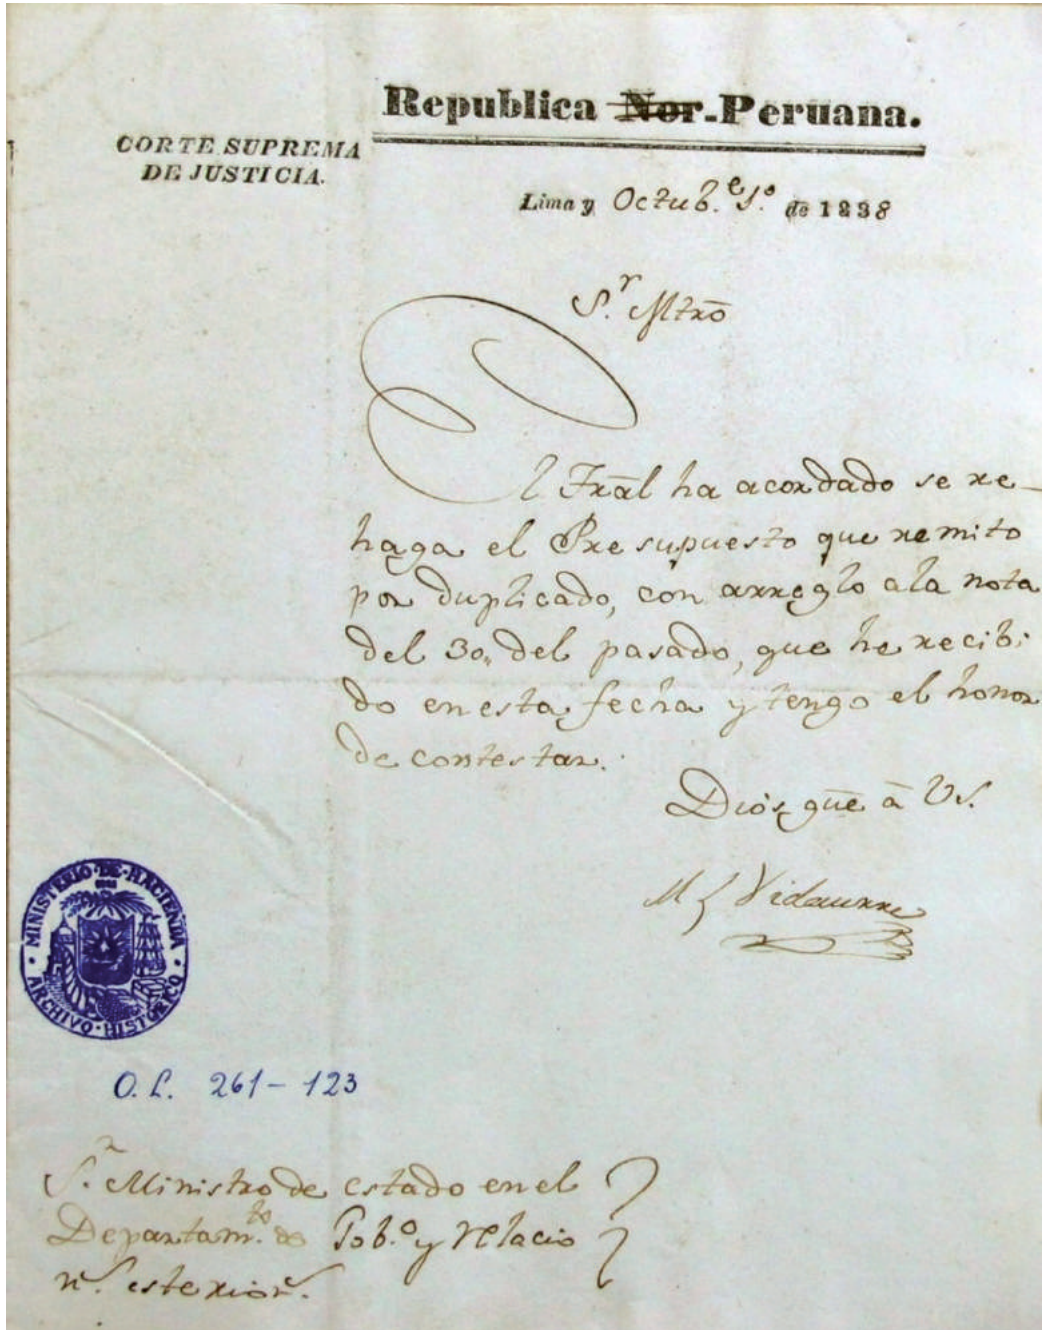 Republica Nor-Peruana.
CORTE SUPREMA
DE JUSTICIA.
Lima y Octub.e 1.o de 1838
S.r Mtrō
El Tral ha acordado se re-
haga el Presupuesto que remito
por duplicado, con arreglo a la nota
del 30,, del pasado, que he recibi
do en esta fecha y tengo el honor
de contestar.
Dios gūe ā VS.
M L Vidaurre
MINISTERIO·DE·HACIENDA
ARCHIVO·HISTORICO
O.L. 261-123
S.r Ministro de estado en el
Departam.to de Gob.o y Relacio
n.s esterior.s